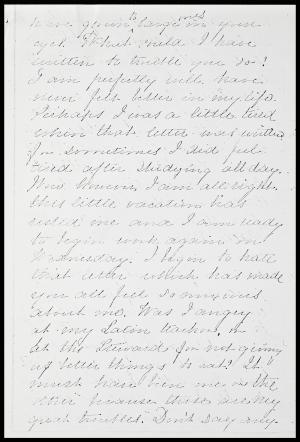 have grown to large ones in your
eyes. What could I have
written to trouble you so?
I am perfectly well, have
never felt better in my life.
Perhaps I was a little tired
when that letter was written
for sometimes I did feel
tired after studying all day.
Now however, I am all right.
this little vacation has
rested me and I am ready
to begin work again on
Wednesday. I begin to hate
that letter which has made
you all feel so anxious
about me. Was I angry
at my Latin teacher, or
at the Steward for not giving
us better things to eat? It
must have been one or the
other because those are my
great troubles. Don't say any